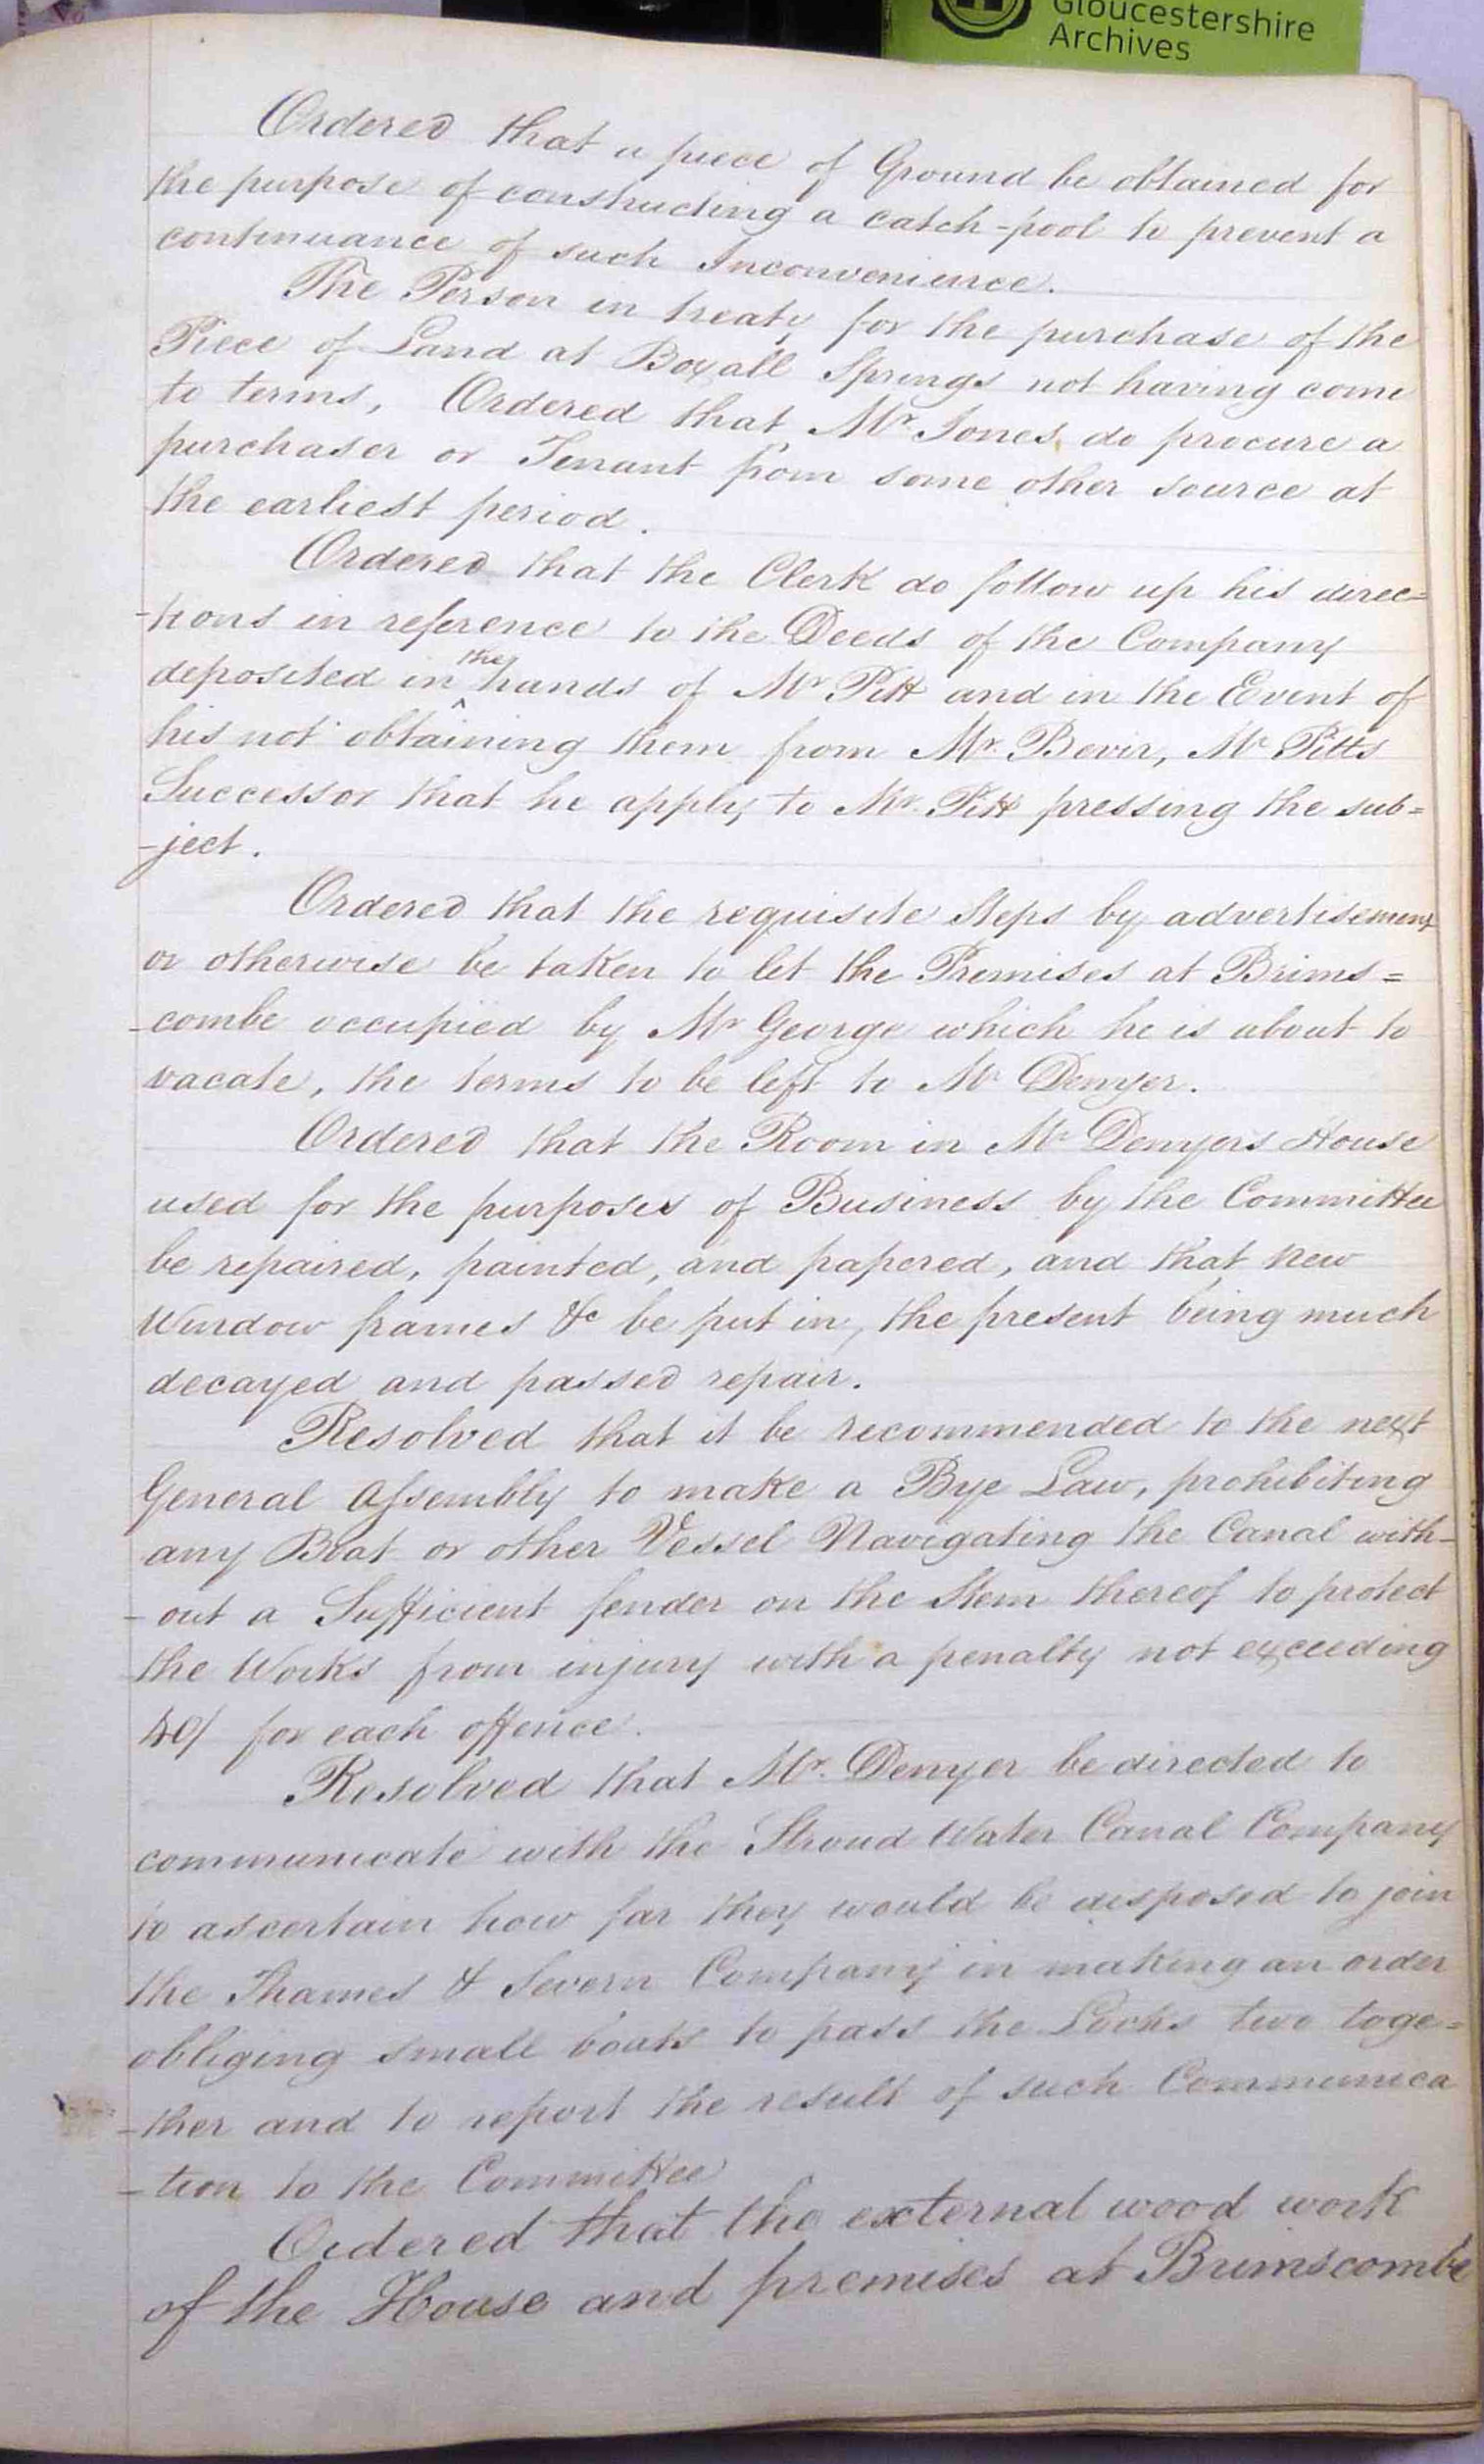 Gloucestershire
Archives
Ordered that a piece of Ground be obtained for
the purpose of constructing a catch-pool to prevent a
continuance of such Inconvenience.
The Person in treaty for the purchase of the
Piece of Land at Boxall Springs not having come
to terms, Ordered that Mr Jones do procure a
purchaser or Tenant from some other source at
the earliest period.
Ordered that the Clerk do follow up his direc=
-tions in reference to the Deeds of the Company
deposited in the hands of Mr Pitt and in the Event of
his not obtaining them from Mr. Bevir, Mr Pitts
Successor that he apply to Mr. Pitt pressing the sub=
-ject.
Ordered that the requisite Steps by advertisement
or otherwise be taken to let the Premises at Brims=
-combe occupied by Mr George which he is about to
vacate, the terms to be left to Mr Denyer.
Ordered that the Room in Mr Denyers House
used for the purposes of Business by the Committee
be repaired, painted, and papered, and that new
Window frames &c be put in, the present being much
decayed and passed repair.
Resolved that it be recommended to the next
General Assembly to make a Bye Law, prohibiting
any Boat or other Vessel Navigating the Canal with-
-out a Sufficient fender on the Stem thereof to protect
the Works from injury with a penalty not exceeding
40/ for each offence.
Resolved that Mr. Denyer be directed to
communicate with the Stroud Water Canal Company
to ascertain how far they would be disposed to join
the Thames & Severn Company in making an order
obliging small boats to pass the Locks two toge=
-ther and to report the result of such Communica
-tion to the Committee
Ordered that the external wood work
of the House and premises at Brimscombe